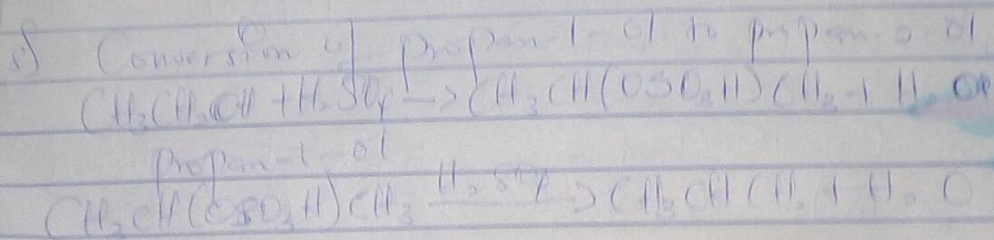 s) Conversion of propan-1-ol to propan-2-ol
CH₃CH₂OH + H₂SO₄ → CH₃CH(OSO₃H)CH₃ + H₂O
propan-1-ol
CH₃CH(OSO₃H)CH₃ H₂SO₄ → CH₃CHCH₂ + H₂O